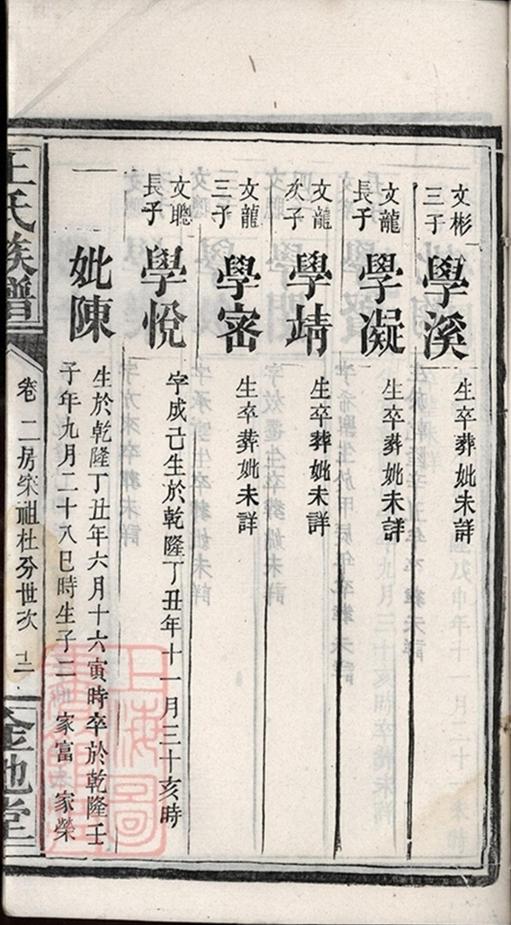 文彬
三子
學溪
生卒葬妣未詳
文龍
長子
學凝
生卒葬妣未詳
文龍
次子
學靖
生卒葬妣未詳
文龍
三子
學密
生卒葬妣未詳
文聰
長子
學悅
字成己生於乾隆丁丑年十一月三十亥時
妣陳
生於乾隆丁丑年六月十六寅時卒於乾隆壬
子年九月二十八巳時生子二 家富 家榮
王氏族譜
卷二房榮祖杜分世次
金池堂
上海圖
書館藏